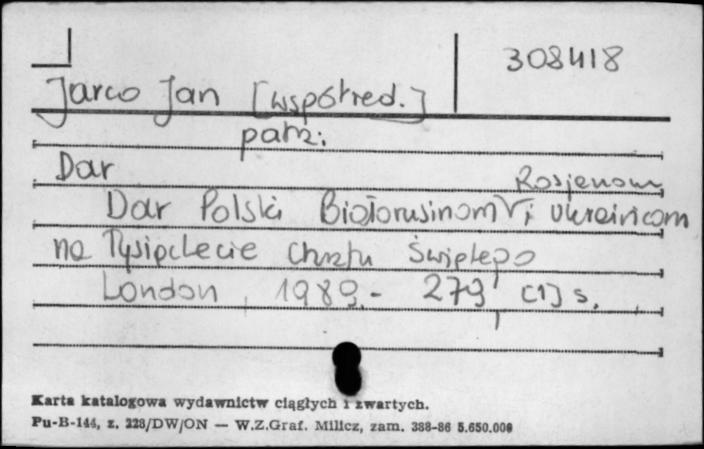 308418
Jarco Jan [współred.]
patrz:
Dar
Rosjanom
Dar Polski Białorusinom √ i Ukraińcom
na Tysiąclecie Chrztu Świętego
London, 1989.- 279, [1] s.
Karta katalogowa wydawnictw ciągłych i zwartych.
Pu-B-144, z. 228/DW/ON — W.Z.Graf. Milicz, zam. 388-86 5.650.000